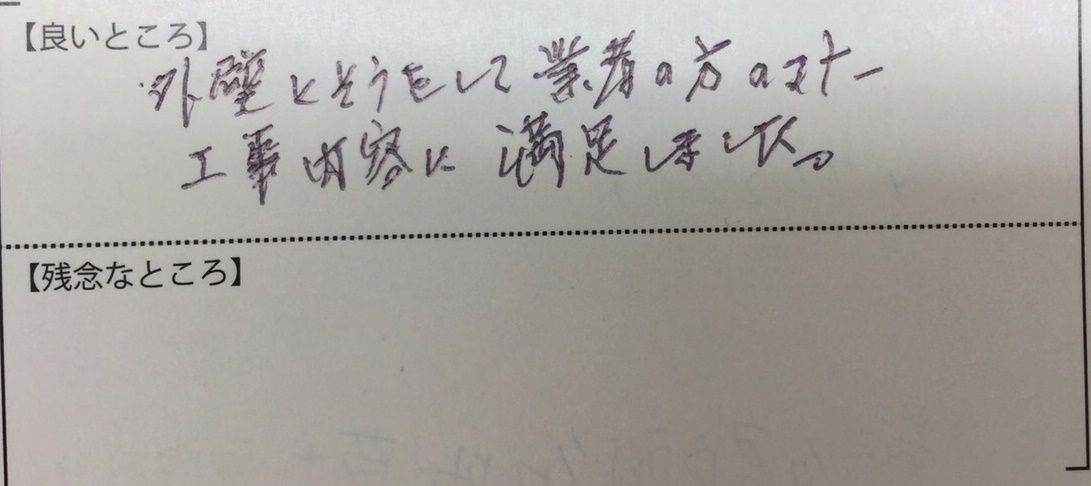 【良いところ】
外壁とそうをして業者の方のマナー
工事内容に満足しました。
【残念なところ】